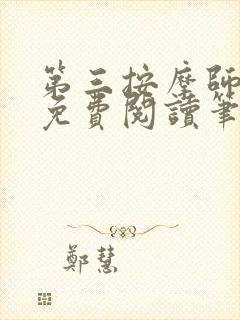 第三按摩師
免費閱讀筆
鄭慧